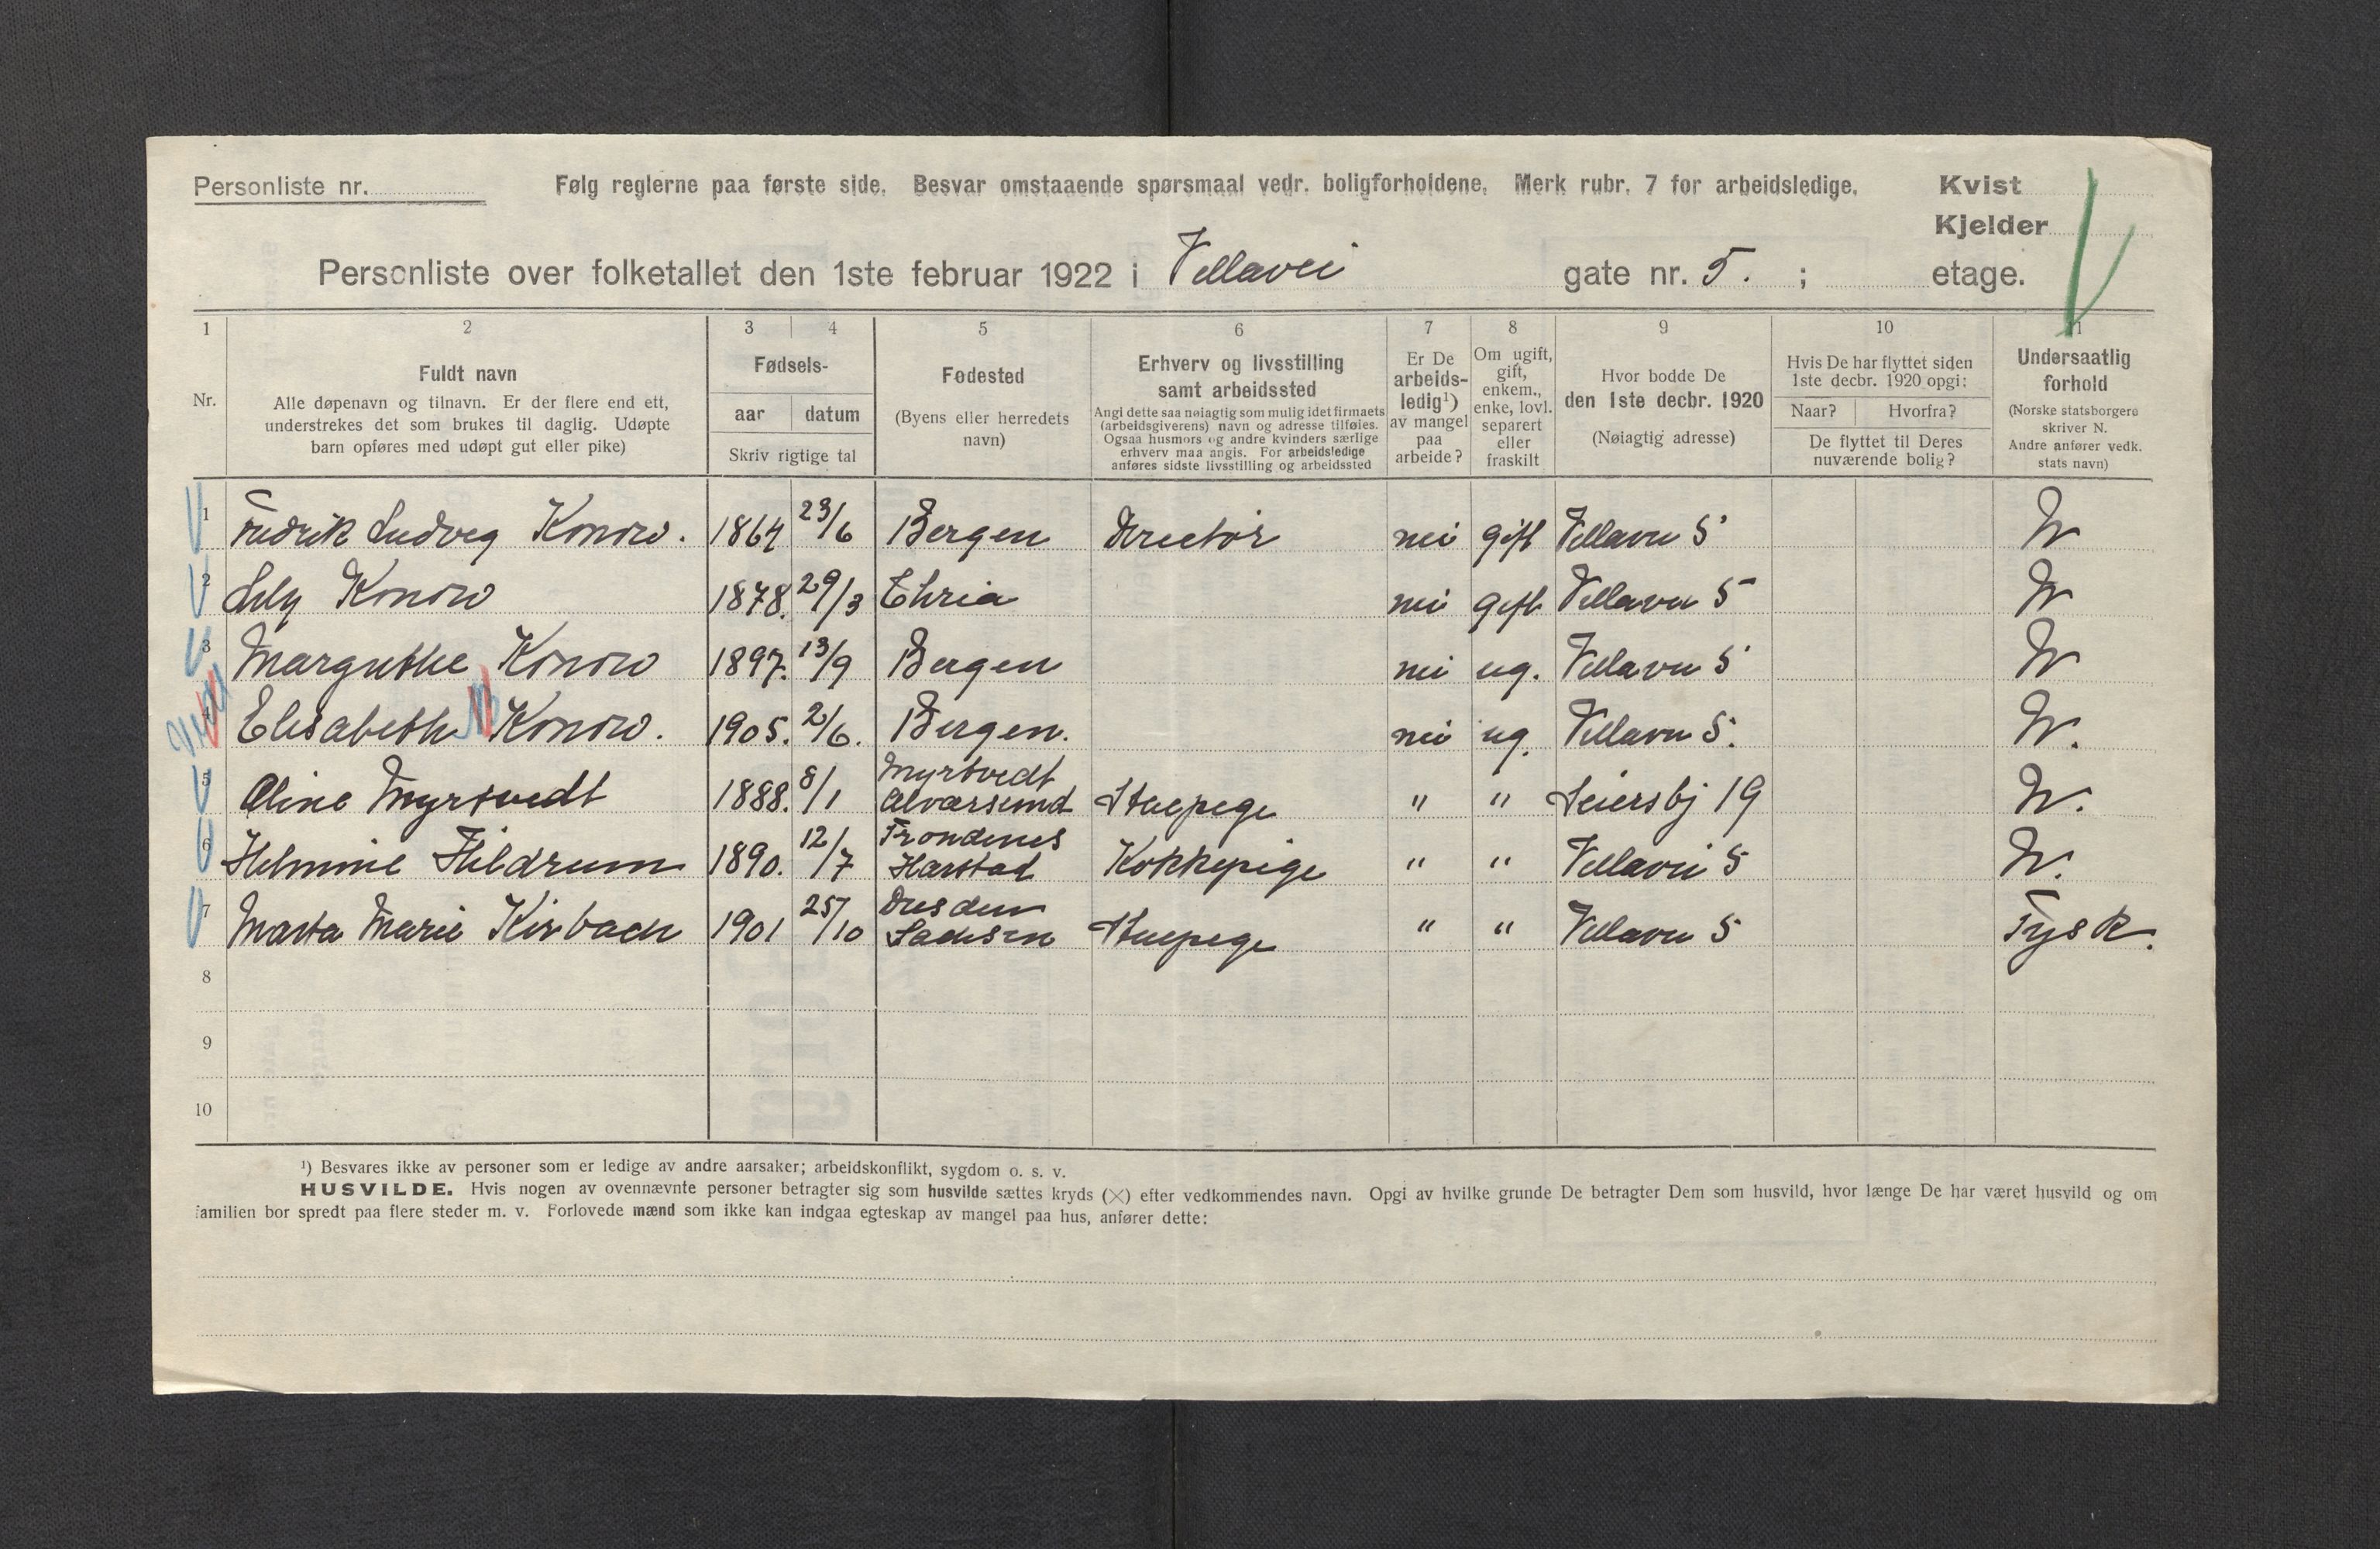 Personliste nr.
Følg reglerne paa første side. Besvar omstaaende spørsmaal vedr. boligforholdene. Merk rubr. 7 for arbeidsledige.
Kvist
Kjelder
Personliste over folketallet den 1ste februar 1922 i Villavei gate nr. 5. ; etage.
1 2 3 4 5 6 7 8 9 10 11
Nr.
Fuldt navn
Alle døpenavn og tilnavn. Er der flere end ett,
understrekes det som brukes til daglig. Udøpte
barn opføres med udøpt gut eller pike)
Fødsels-
aar datum
Skriv rigtige tal
Fødested
(Byens eller herredets
navn)
Erhverv og livsstilling
samt arbeidssted
Angi dette saa nøiagtig som mulig idet firmaets
(arbeidsgiverens) navn og adresse tilføies.
Ogsaa husmors og andre kvinders særlige
erhverv maa angis. For arbeidsledige
anføres sidste livsstilling og arbeidssted
Er De
arbeids-
ledig¹)
av mangel
paa
arbeide?
Om ugift,
gift,
enkem.,
enke, lovl.
separert
eller
fraskilt
Hvor bodde De
den 1ste decbr. 1920
(Nøiagtig adresse)
Hvis De har flyttet siden
1ste decbr. 1920 opgi:
Naar? Hvorfra?
De flyttet til Deres
nuværende bolig?
Undersaatlig
forhold
(Norske statsborgere
skriver N.
Andre anfører vedk.
stats navn)
1 Fredrik Ludvig Konow. 1864 23/6 Bergen Direktør nei gift Villavei 5 N
2 Lily Konow 1878. 29/3 Chria nei gift Villavei 5 N
3 Margrethe Konow 1897. 13/9 Bergen nei ug. Villavei 5 N
4 Elisabeth Konow. 1905. 2/6. Bergen. nei ug. Villavei 5. N.
5 Oline Myrtvedt 1888. 8/1 Myrtvedt Alversund Stuepige " " Seiersbj 19 N.
6 Helmine Hildrum 1890. 12/7 Trondenes Harstad Kokkepige " " Villavei 5 N.
7 Marta Marie Kirbach 1901 25/10 Dresden Sachsen Stuepige " " Villavei 5 Tysk.
8
9
10
¹) Besvares ikke av personer som er ledige av andre aarsaker; arbeidskonflikt, sygdom o. s. v.
HUSVILDE. Hvis nogen av ovennævnte personer betragter sig som husvilde sættes kryds (×) efter vedkommendes navn. Opgi av hvilke grunde De betragter Dem som husvild, hvor længe De har været husvild og om
familien bor spredt paa flere steder m. v. Forlovede mænd som ikke kan indgaa egteskap av mangel paa hus, anfører dette: